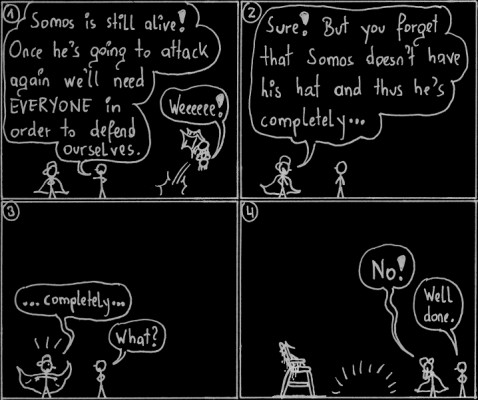 1
Somos is still alive!
Once he's going to attack
again we'll need
EVERYONE in
order to defend
ourselves.
Weeeeee!
2
Sure! But you forget
that Somos doesn't have
his hat and thus he's
completely...
3
... completely...
What?
4
No!
Well
done.